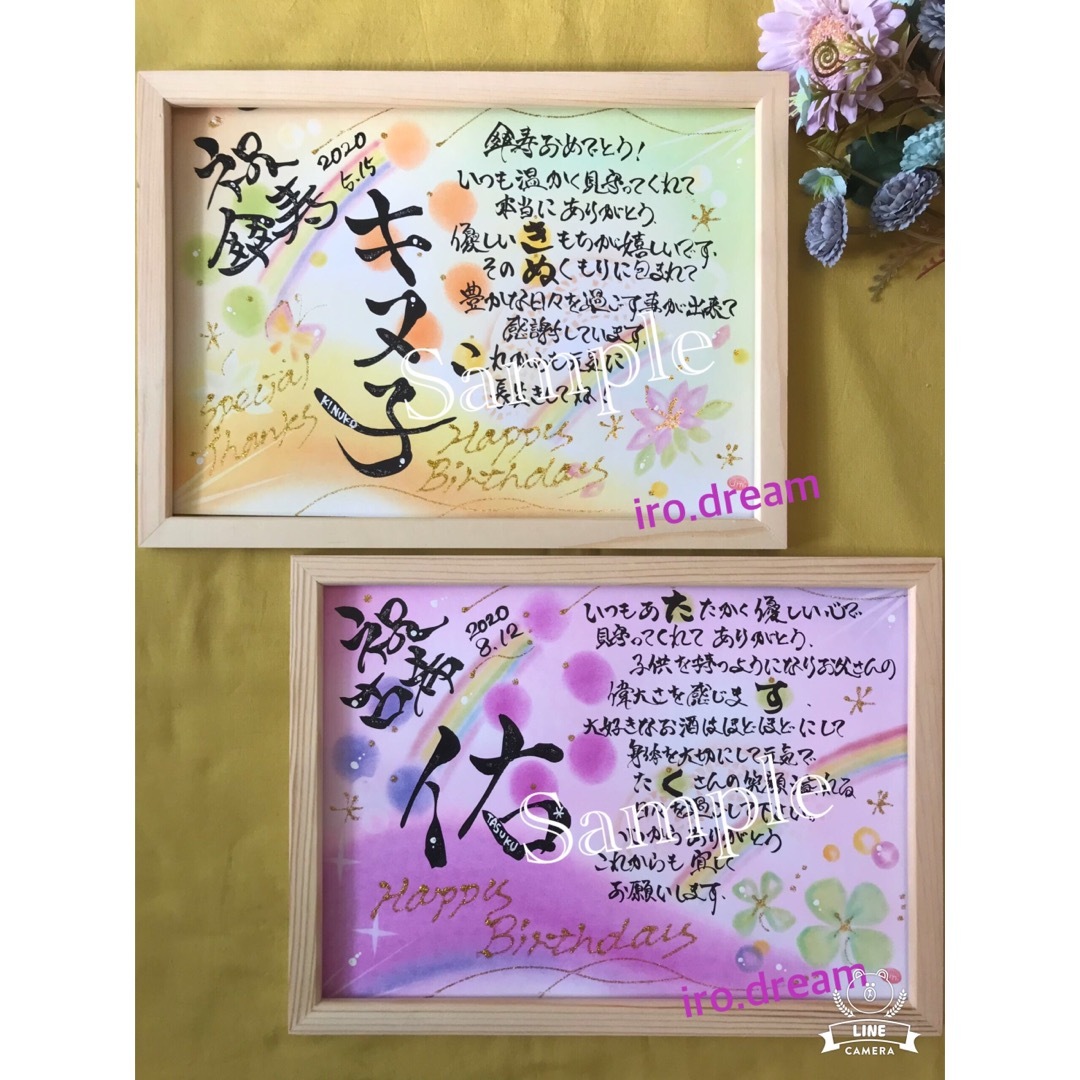 祝
2020
5.15
キヌ子
KINUKO
おめでとう!
いつも温かく見守ってくれて
本当にありがとう.
優しいきもちが嬉しいです.
そのぬくもりに包まれて
豊かな日々を過ごす事が出来て
感謝しています
これからも元気に
長生きしてね!
Special
Thanks
Happy
Birthday
Sample
iro.dream
祝
古希
2020
8.12
佑
TASUKU
いつもあたたかく優しい心で
見守ってくれてありがとう.
子供を持つようになりお父さんの
偉大さを感じます.
大好きなお酒はほどほどにして
身体を大切にして元気で
たくさんの笑顔溢れる
日々を過ごして下さい.
心からありがとう
これからも宜しく
お願いします.
Happy
Birthday
Sample
iro.dream
LINE
CAMERA